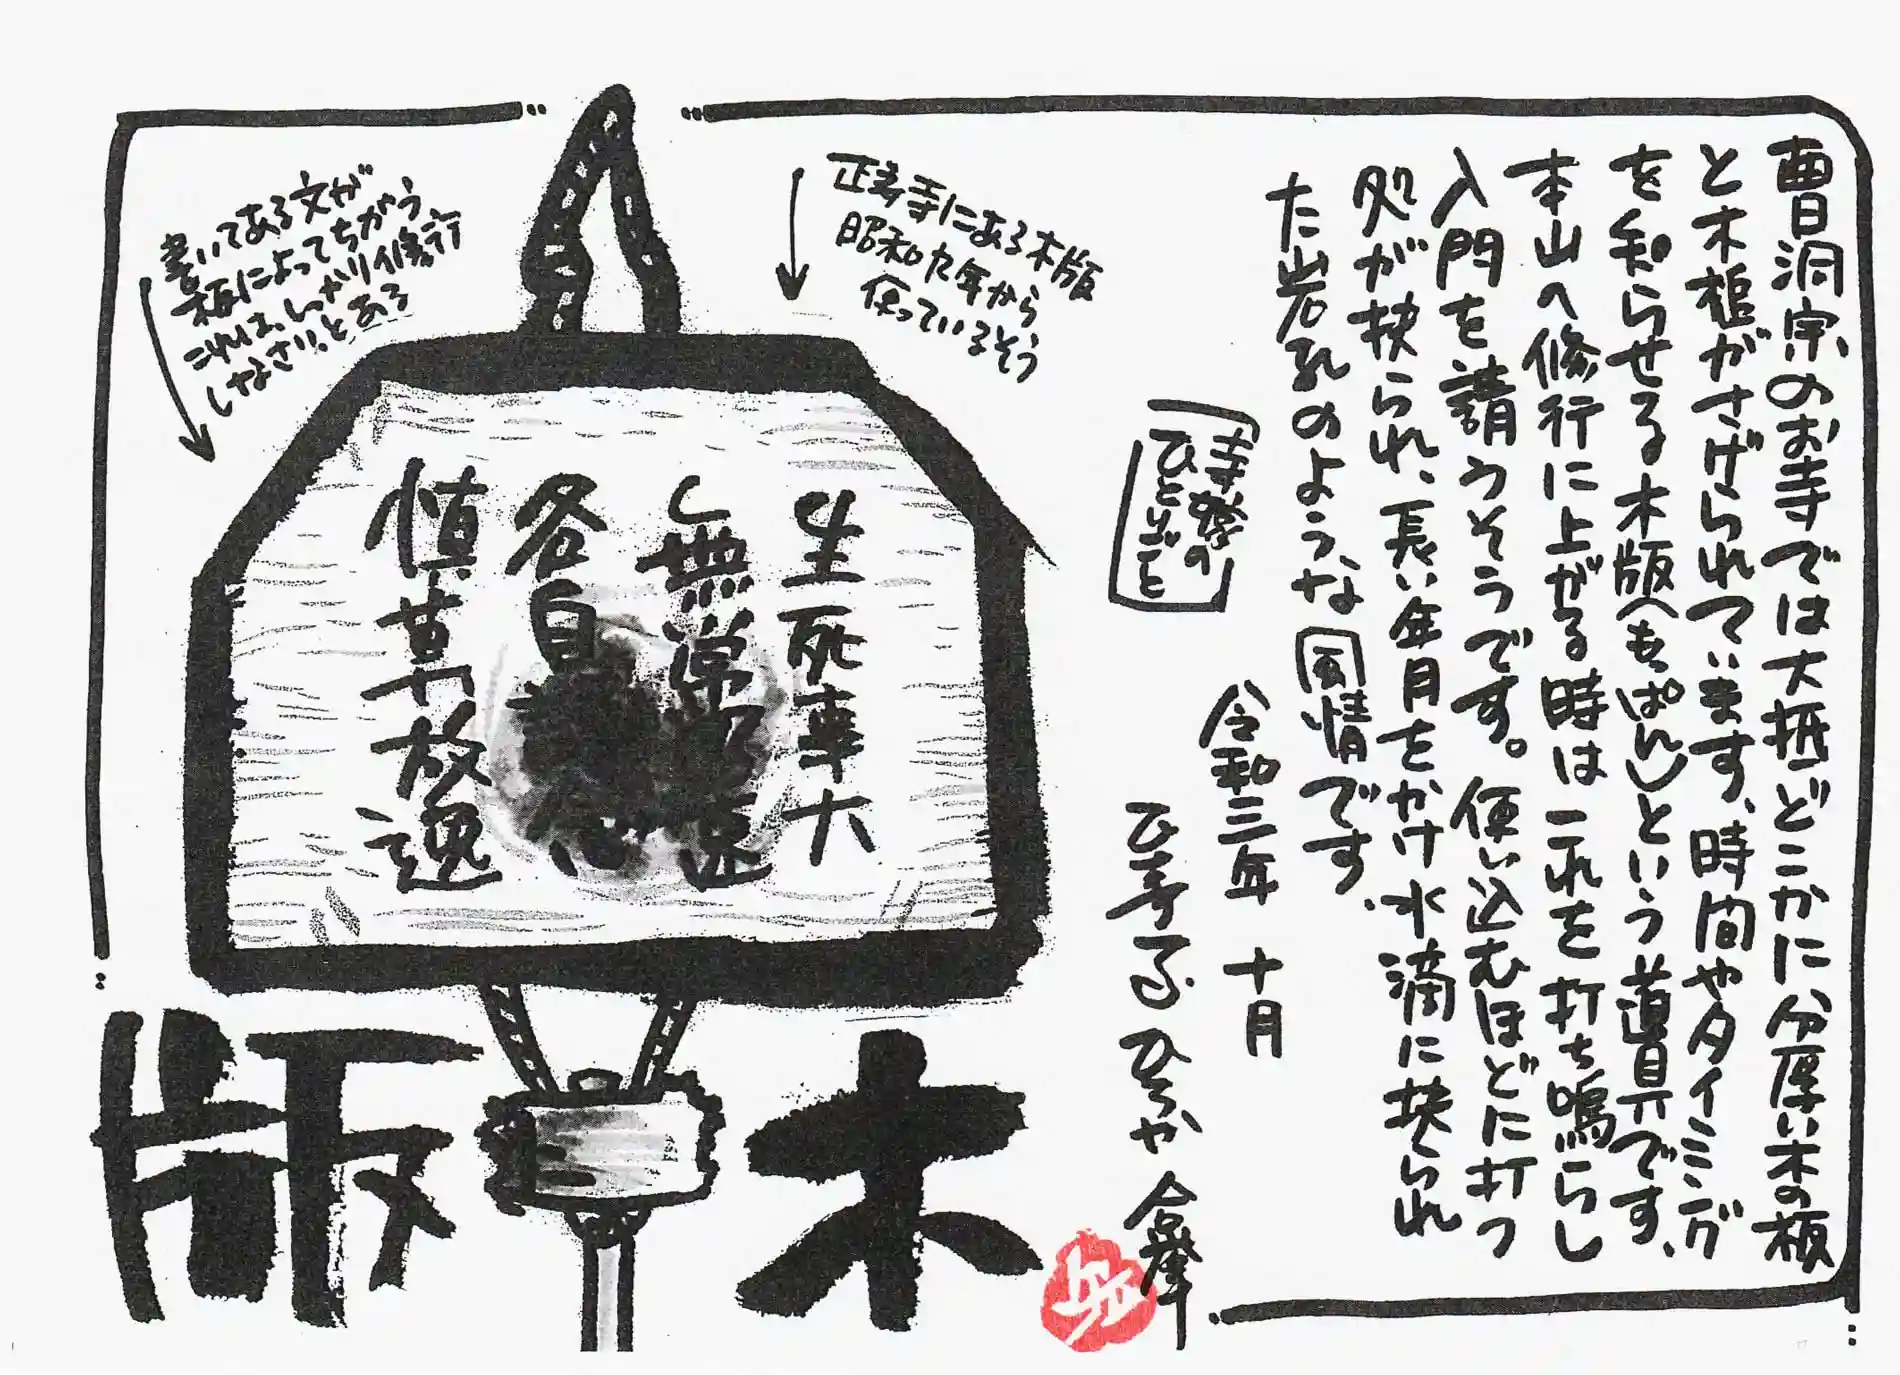 曹洞宗のお寺では大抵どこかに分厚い木の板
と木槌がさげられています、時間やタイミング
を知らせる木版(もっぱん)という道具です、
本山へ修行に上がる時はこれを打ち鳴らし
入門を請うそうです。使い込むほどに打つ
処が抉られ、長い年月をかけ水滴に抉られ
た岩孔のような風情です、
寺嫁の
ひとりごと
令和三年 十月
ひろか 合掌
正寿寺にある木版
昭和九年から
使っているそう
書いてある文が
板によってちがう
これは、しっかり修行
しなさい。とある
生死事大
無常迅速
各自
慎草放逸
木版